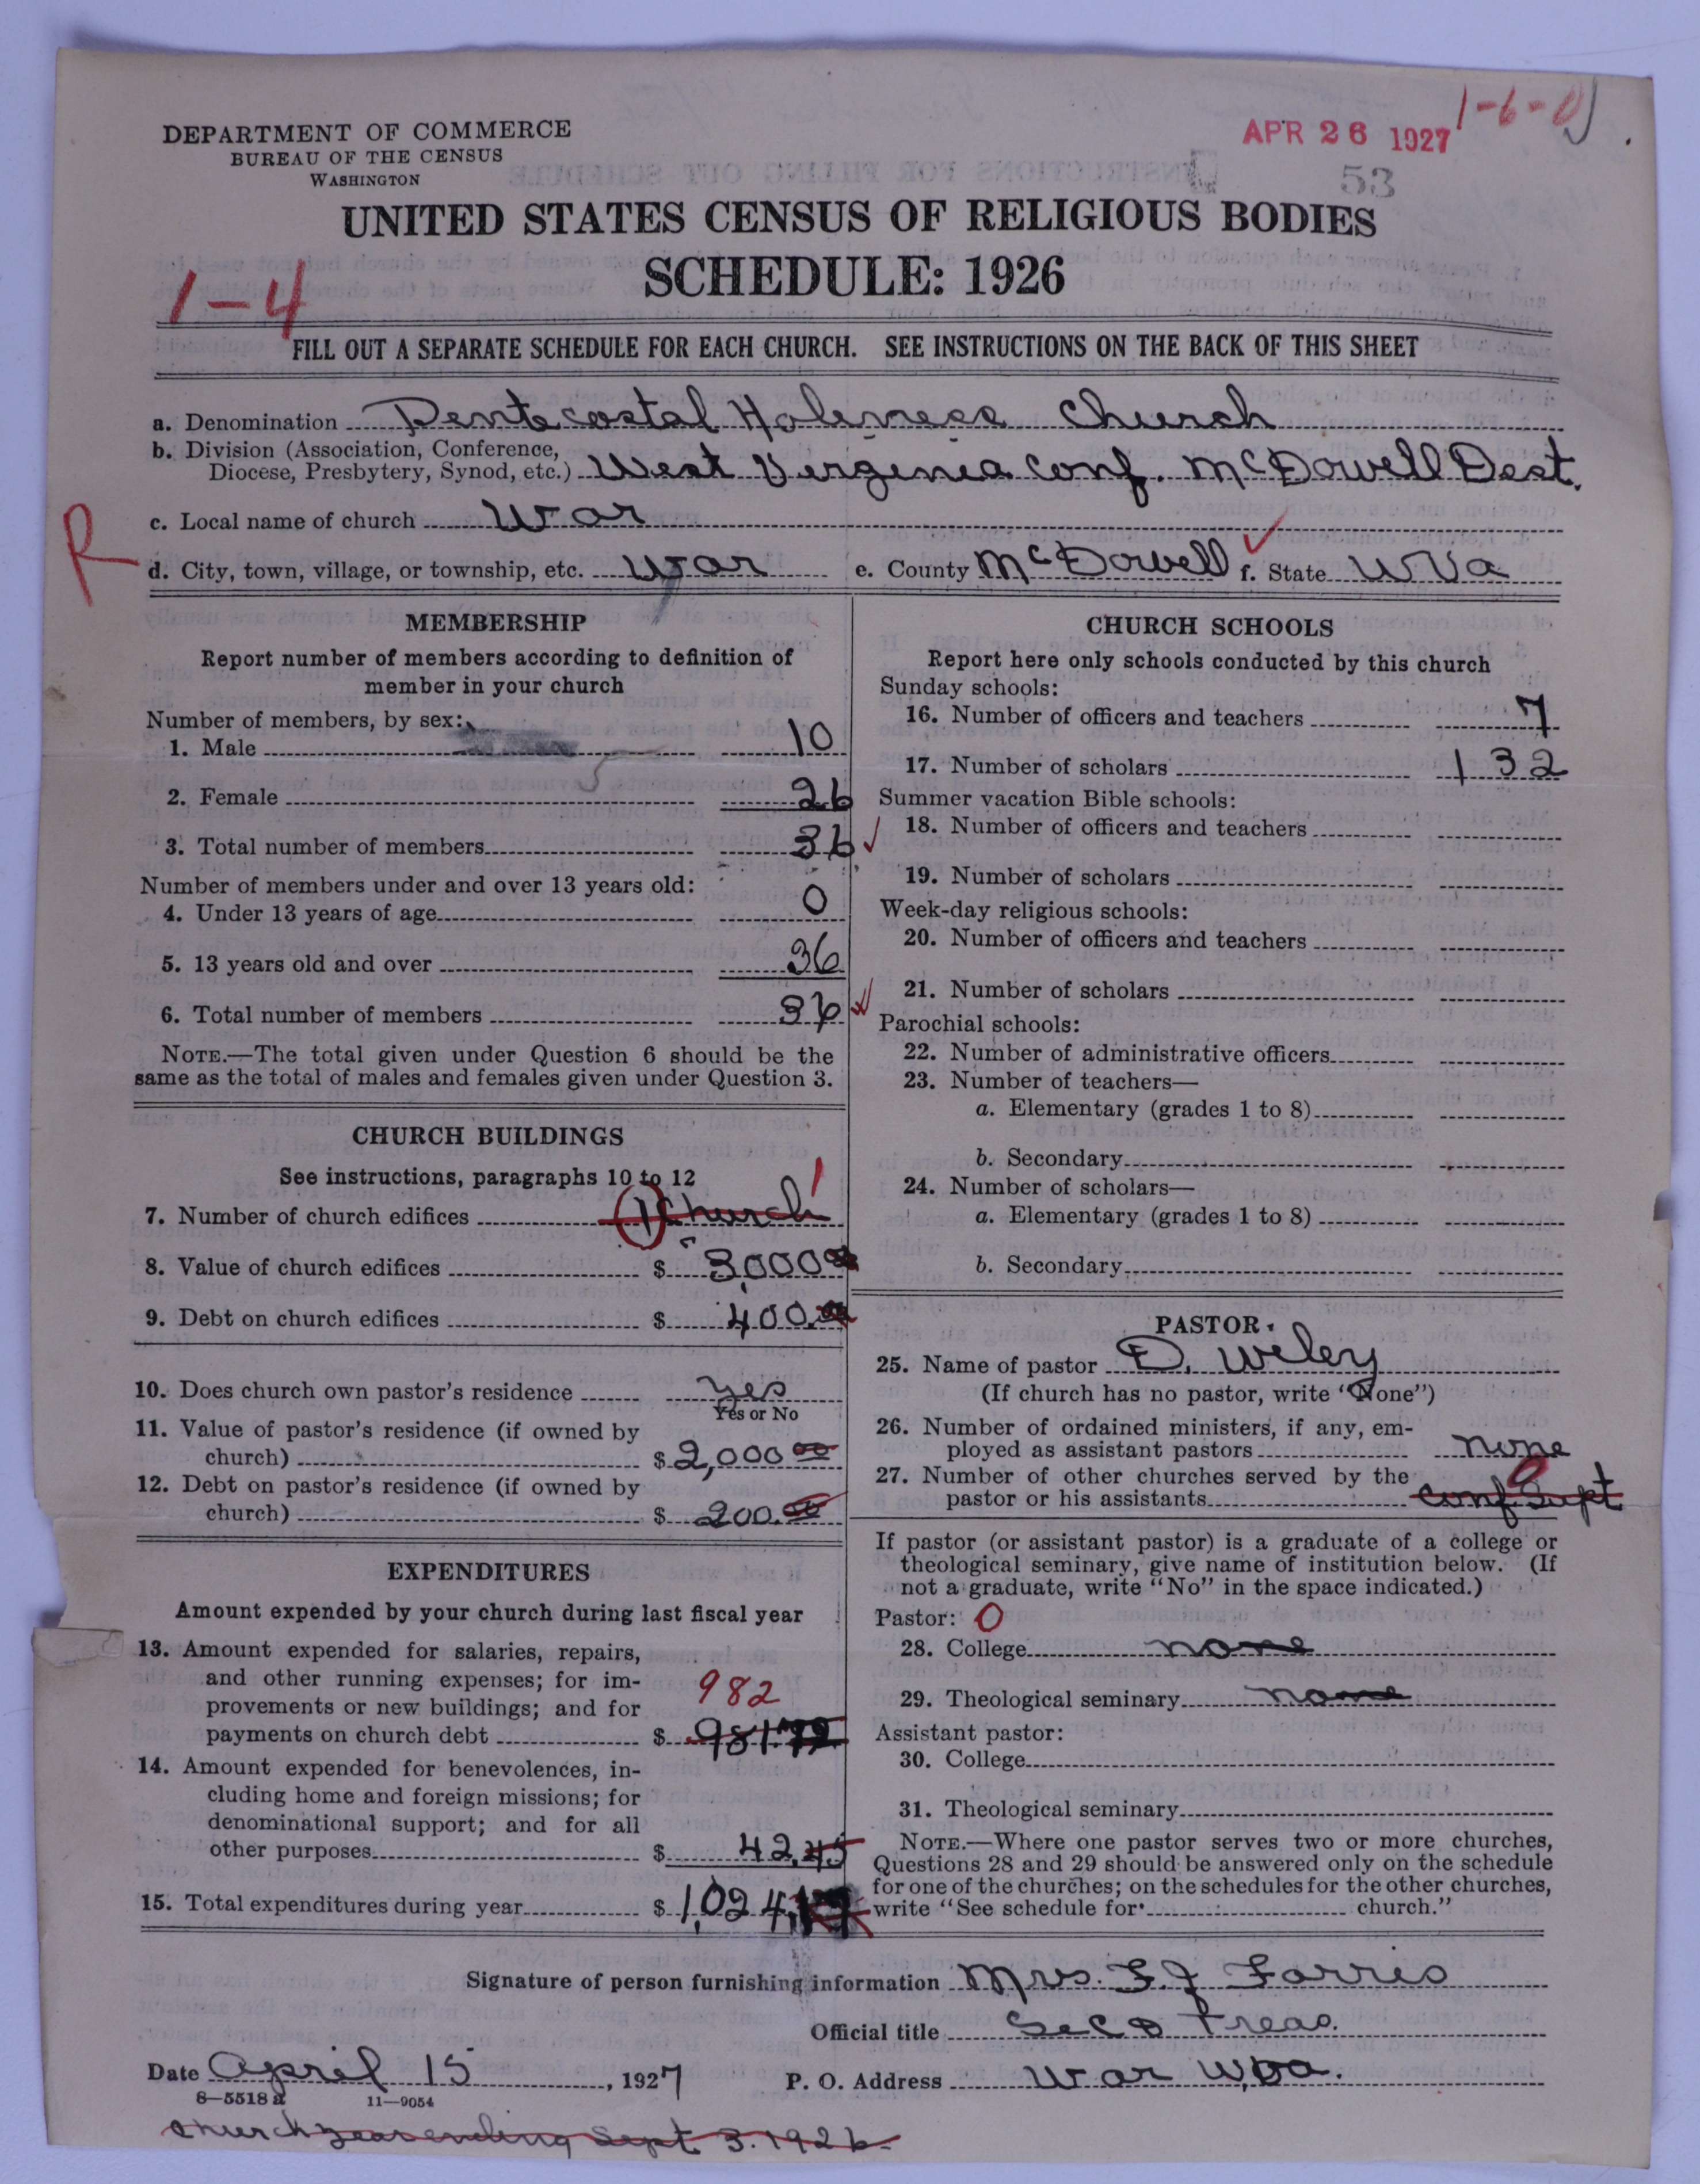 1-6-0
APR 26 1927
53
DEPARTMENT OF COMMERCE
BUREAU OF THE CENSUS
WASHINGTON
UNITED STATES CENSUS OF RELIGIOUS BODIES
SCHEDULE: 1926
1-4
FILL OUT A SEPARATE SCHEDULE FOR EACH CHURCH. SEE INSTRUCTIONS ON THE BACK OF THIS SHEET
a. Denomination Pentecostal Holiness Church
b. Division (Association, Conference,
Diocese, Presbytery, Synod, etc.) West Virginia Conf. McDowell Dest.
c. Local name of church War
R
d. City, town, village, or township, etc. War e. County McDowell f. State W Va
MEMBERSHIP
Report number of members according to definition of
member in your church
Number of members, by sex:
1. Male 10
2. Female 26
3. Total number of members 36
Number of members under and over 13 years old:
4. Under 13 years of age 0
5. 13 years old and over 36
6. Total number of members 36
NOTE.—The total given under Question 6 should be the
same as the total of males and females given under Question 3.
CHURCH BUILDINGS
See instructions, paragraphs 10 to 12
7. Number of church edifices 1 Church 1
8. Value of church edifices $ 3,000 00
9. Debt on church edifices $ 400.00
10. Does church own pastor's residence yes
Yes or No
11. Value of pastor's residence (if owned by
church) $ 2,000 00
12. Debt on pastor's residence (if owned by
church) $ 200.00
EXPENDITURES
Amount expended by your church during last fiscal year
13. Amount expended for salaries, repairs,
and other running expenses; for im-
provements or new buildings; and for
982
payments on church debt $ 981.72
14. Amount expended for benevolences, in-
cluding home and foreign missions; for
denominational support; and for all
other purposes $ 42.45
15. Total expenditures during year $ 1,024.17
CHURCH SCHOOLS
Report here only schools conducted by this church
Sunday schools:
16. Number of officers and teachers 7
17. Number of scholars 132
Summer vacation Bible schools:
18. Number of officers and teachers
19. Number of scholars
Week-day religious schools:
20. Number of officers and teachers
21. Number of scholars
Parochial schools:
22. Number of administrative officers
23. Number of teachers—
a. Elementary (grades 1 to 8)
b. Secondary
24. Number of scholars—
a. Elementary (grades 1 to 8)
b. Secondary
PASTOR
25. Name of pastor D. Wiley
(If church has no pastor, write "None")
26. Number of ordained ministers, if any, em-
ployed as assistant pastors none
27. Number of other churches served by the 0
pastor or his assistants Conf Supt
If pastor (or assistant pastor) is a graduate of a college or
theological seminary, give name of institution below. (If
not a graduate, write "No" in the space indicated.)
Pastor: 0
28. College none
29. Theological seminary none
Assistant pastor:
30. College
31. Theological seminary
NOTE.—Where one pastor serves two or more churches,
Questions 28 and 29 should be answered only on the schedule
for one of the churches; on the schedules for the other churches,
write "See schedule for church."
Signature of person furnishing information Mrs. F. J. Farris
Official title Sec & Treas.
Date April 15, 1927 P. O. Address War W. Va.
8—5518 a 11—9054
Church year ending Sept 3. 1926